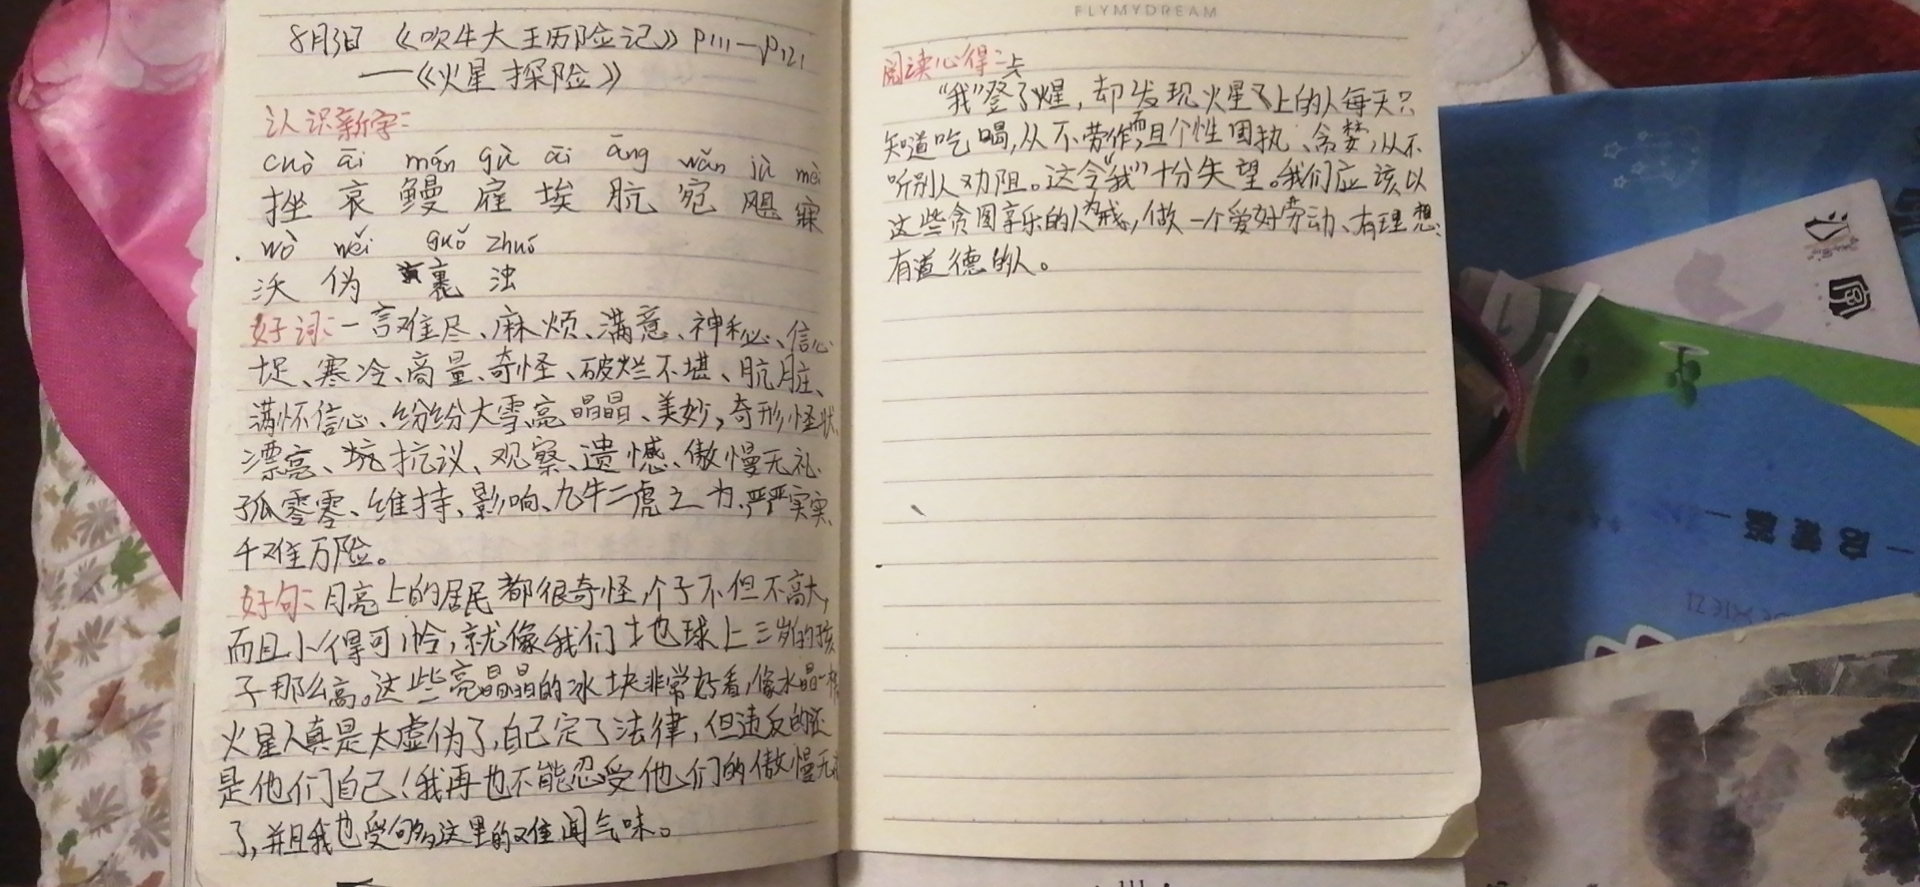 8月3日 《吹牛大王历险记》P111—P121
——《火星探险》
认识新字:
cuò āi mán gù āi āng wǎn jù mèi
挫 哀 鳗 雇 埃 肮 宛 飓 寐
wò wěi guǒ zhuó
沃 伪 裹 浊
好词:一言难尽、麻烦、满意、神秘、信心
足、寒冷、商量、奇怪、破烂不堪、肮脏、
满怀信心、纷纷大雪、亮晶晶、美妙,奇形怪状
漂亮、抗议、观察、遗憾、傲慢无礼、
孤零零、维持、影响、九牛二虎之力、严严实实、
千难万险。
好句:月亮上的居民都很奇怪,个子不但不高大,
而且小得可怜,就像我们地球上三岁的孩
子那么高。这些亮晶晶的冰块非常好看,像水晶一样
火星人真是太虚伪了,自己定了法律,但违反的还
是他们自己!我再也不能忍受他们的傲慢无礼
了,并且我也受够了这里的难闻气味。
FLYMYDREAM
阅读心得:
“我”登了火星,却发现火星上的人每天只
知道吃喝,从不劳作,而且个性固执、贪婪,从不
听别人劝阻。这令“我”十分失望。我们应该以
这些贪图享乐的人为戒,做一个爱好劳动、有理想、
有道德的人。
111